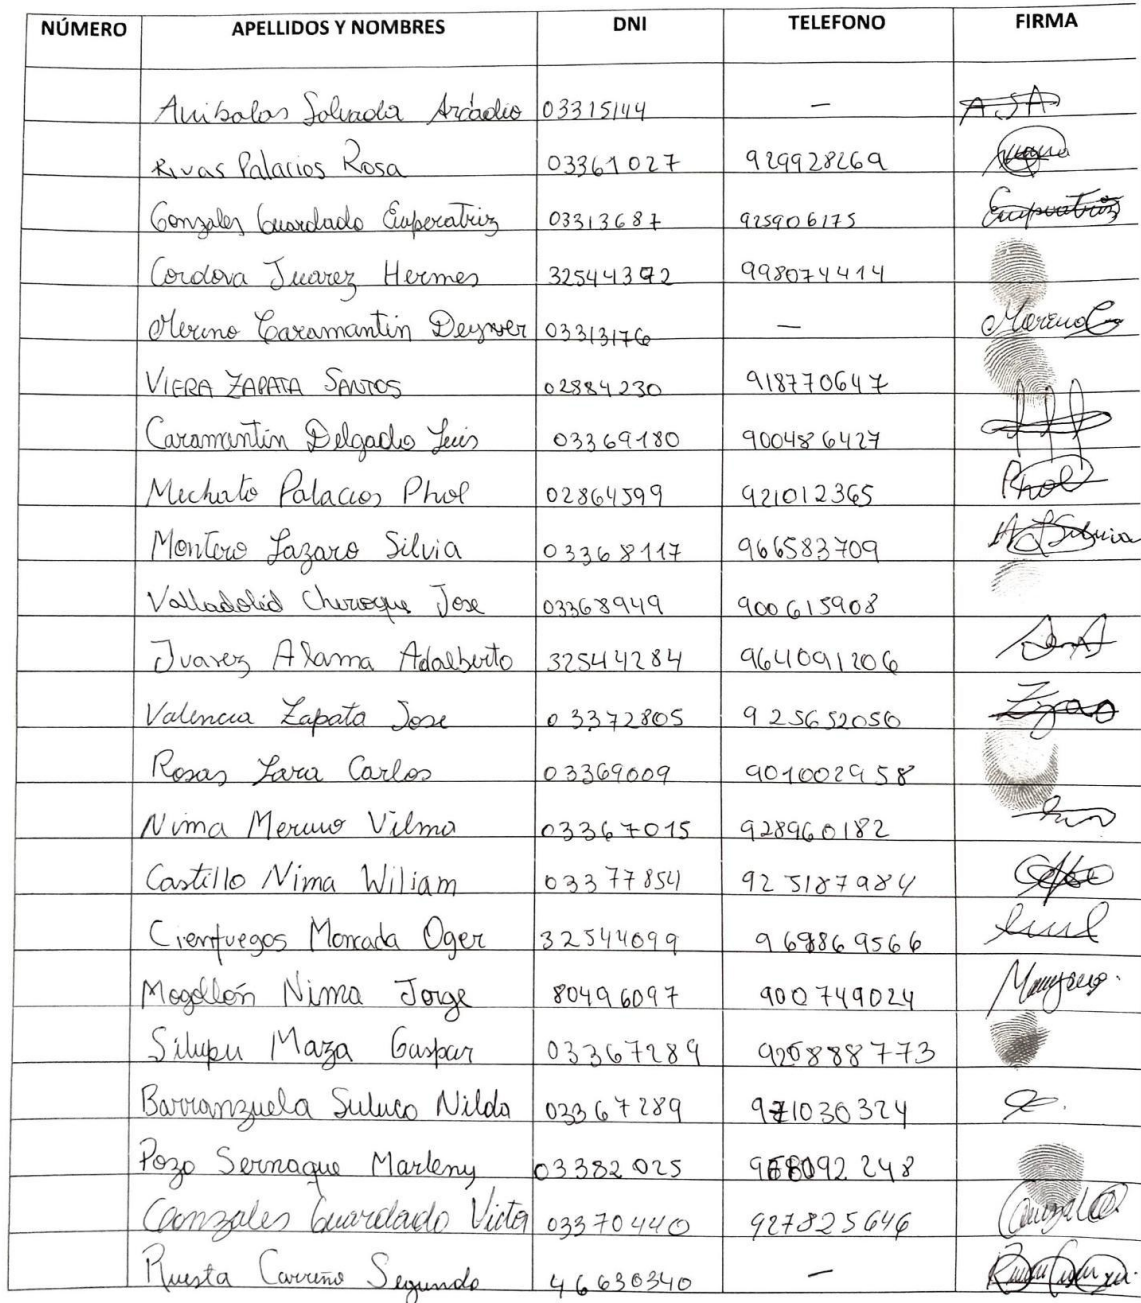 NÚMERO APELLIDOS Y NOMBRES DNI TELEFONO FIRMA
Anibalas Salvada Arcadio 03315144 — A.S.A
Rivas Palacios Rosa 03361027 929928269
Gonzales Guardado Emperatriz 03313687 925906175 Emperatriz
Cordova Juarez Hermes 32544372 998074414
Merino Caramantin Deyver 03313176 — Moreno
VIERA ZAPATA SANTOS 02884230 918770647
Caramantin Delgado Luis 03369180 900486427
Mechato Palacios Phol 02864599 921012365 Phol
Montero Lazaro Silvia 03368117 966583709 Silvia
Valladolid Chiroque Jose 03368949 900615908
Juarez Alama Adalberto 32544284 964091206
Valencia Zapata Jose 03372805 925652050
Rosas Lara Carlos 03369009 901002958
Nima Merino Vilma 03367015 928960182
Castillo Nima Wiliam 03377854 925187984
Cienfuegos Moncada Oger 32544099 969869566
Mogollón Nima Jorge 80496097 900749024
Silupu Maza Gaspar 03367289 920888773
Barranzuela Suluco Nilda 03367289 971030324
Pozo Sernaque Marleny 03382025
Gonzales Guardado Victor 03370440 927825646
Ruesta Carreño Segundo 46630340 —